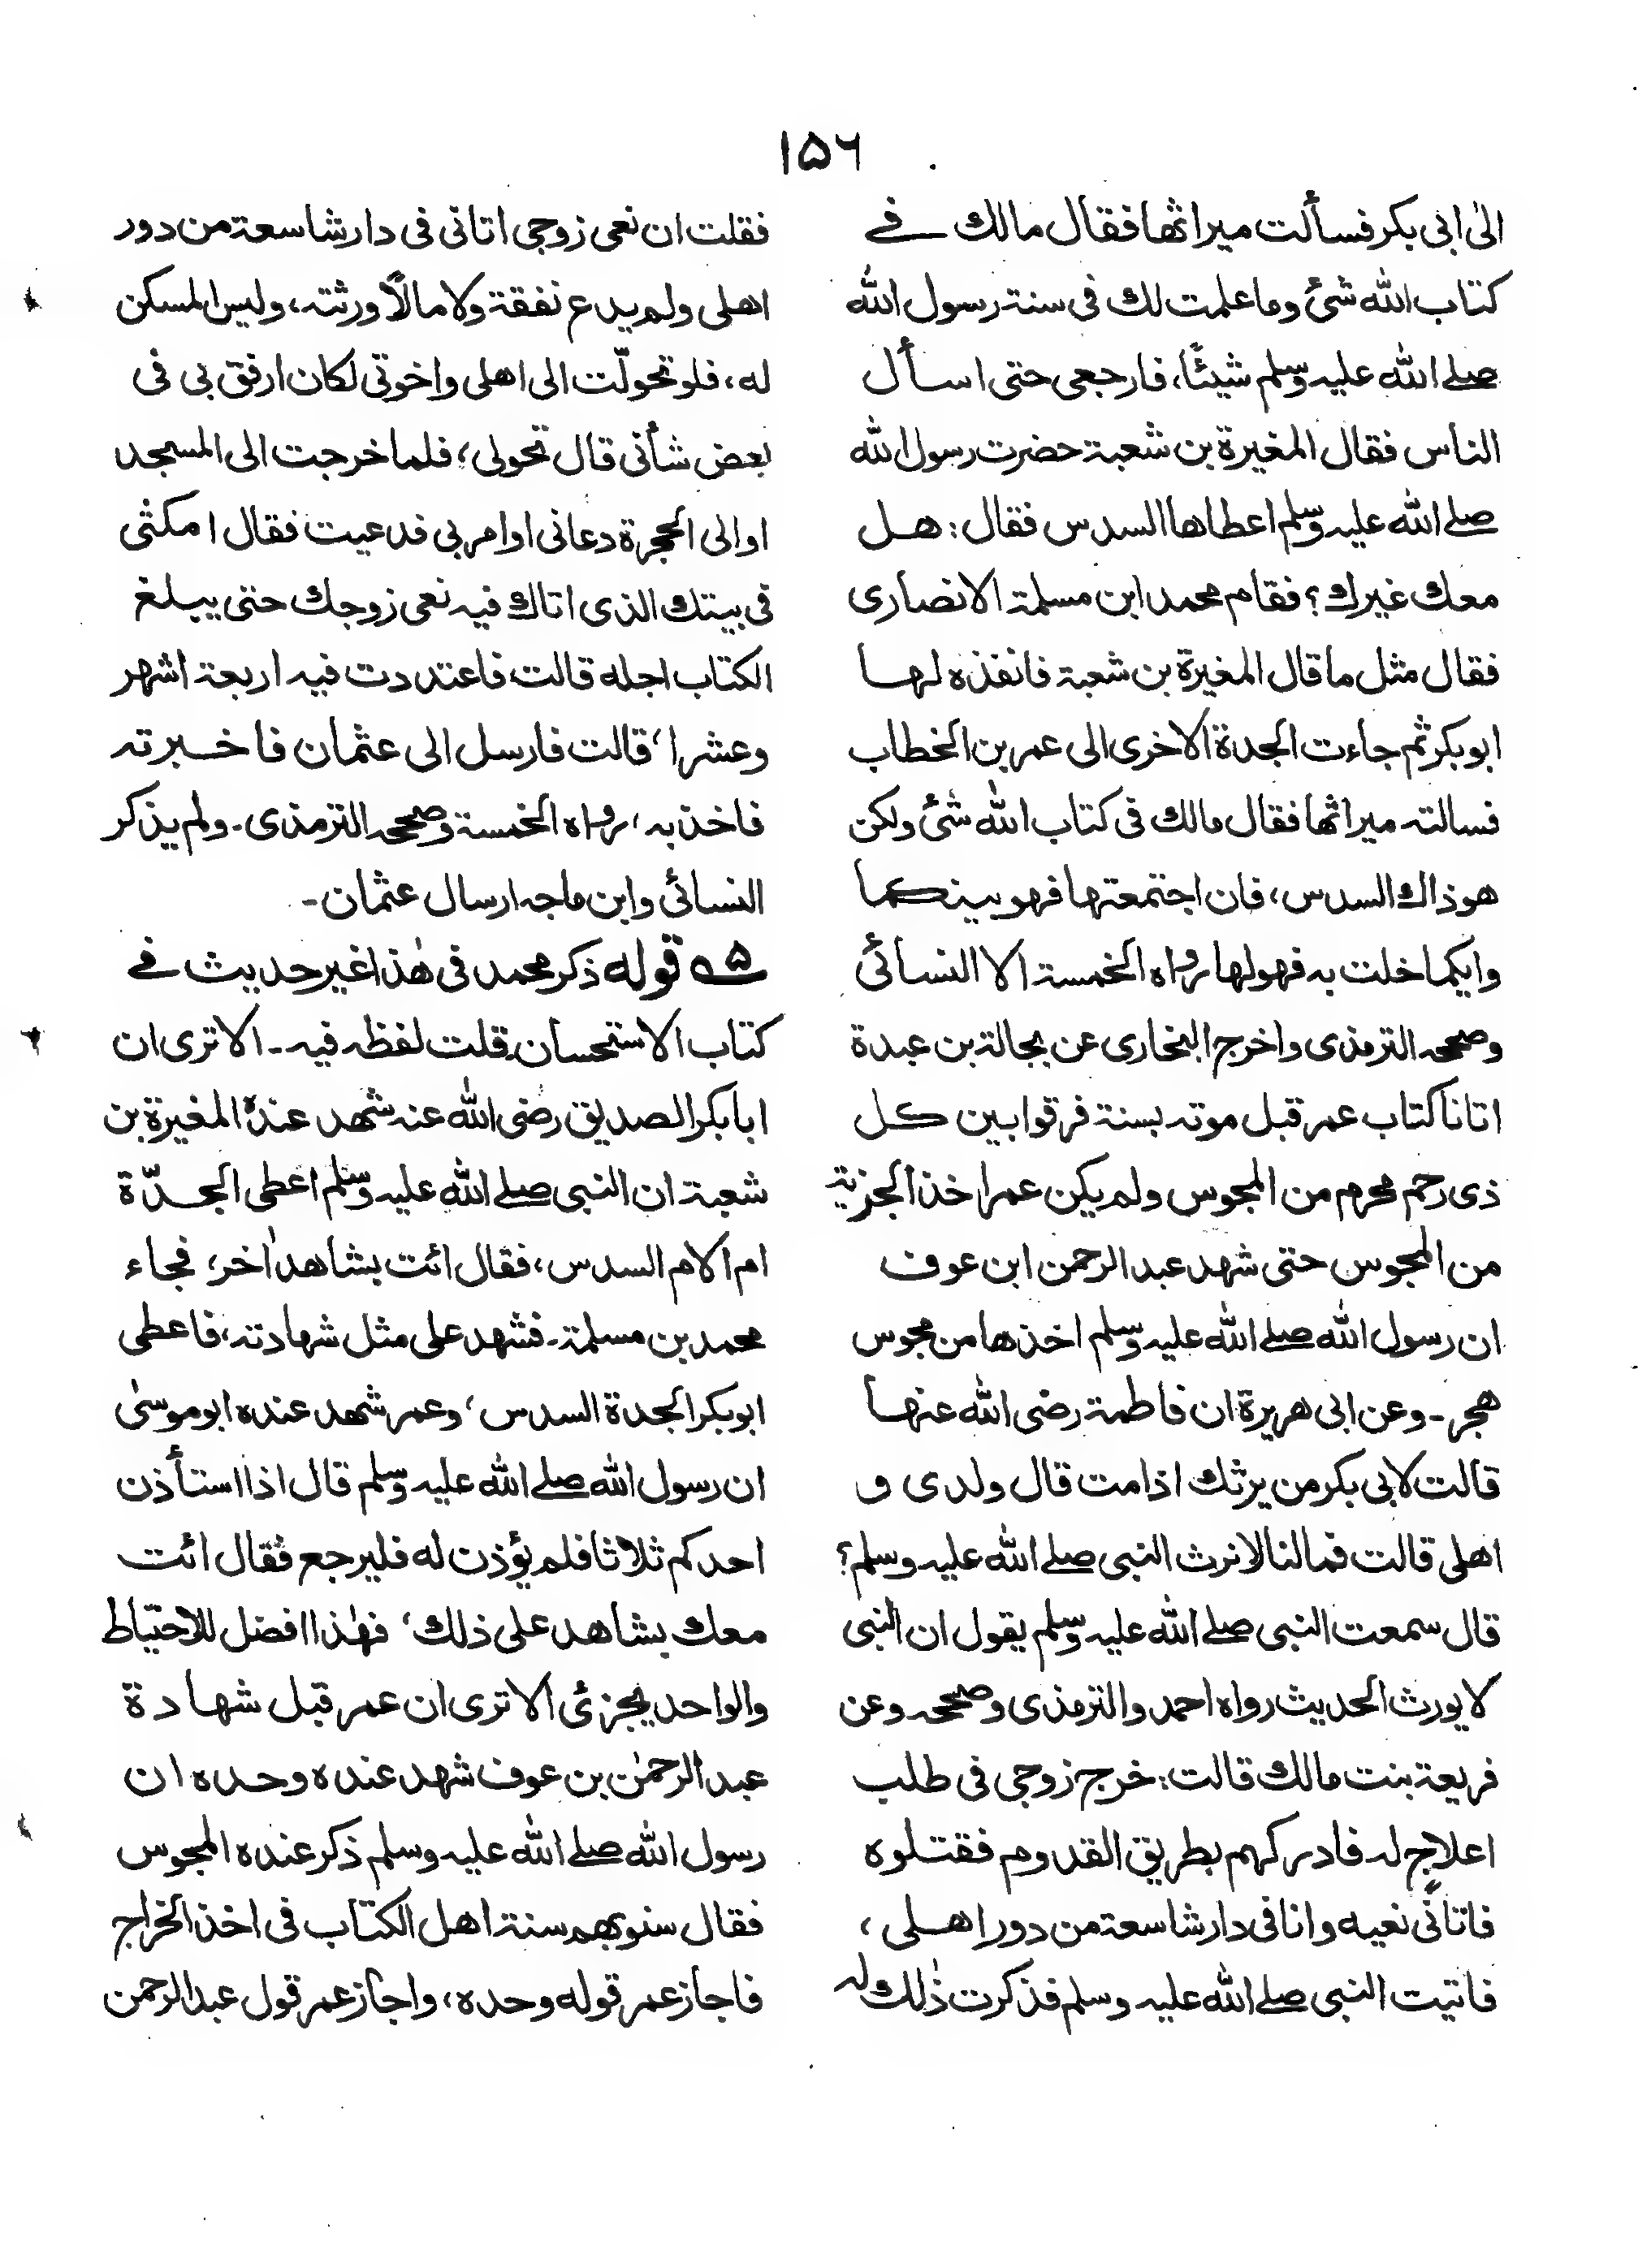 ۱۵۶
الیٰ ابی بکر فسألت میراثھا فقال مالك فے
کتاب اللّٰه شئ وما علمت لك فی سنۃ رسول اللّٰه
صلے اللّٰه علیہ وسلم شیئًا، فارجعی حتی اسأل
الناس فقال المغیرۃ بن شعبۃ حضرت رسول اللّٰه
صلے اللّٰه علیہ وسلم اعطاھا السدس فقال: ھل
معك غیرك؟ فقام محمد ابن مسلمۃ الانصاری
فقال مثل ما قال المغیرۃ بن شعبۃ فانفذہ لھا
ابو بکر ثم جاءت الجدۃ الاخری الی عمر بن الخطاب
فسالتہ میراثھا فقال مالك فی کتاب اللّٰه شئ ولکن
ھو ذاك السدس، فان اجتمعتھا فھو بینکما
وایکما خلت بہ فھو لھا رواہ الخمسۃ الا النسائی
وصححہ الترمذی واخرج البخاری عن بجالۃ بن عبدۃ
اتانا کتاب عمر قبل موتہ بسنۃ فرقوا بین کل
ذی رحم محرم من المجوس ولم یکن عمر اخذ الجزیۃ
من المجوس حتی شھد عبد الرحمن ابن عوف
ان رسول اللّٰه صلے اللّٰه علیہ وسلم اخذھا من مجوس
ھجر۔ وعن ابی ھریرۃ ان فاطمۃ رضی اللّٰه عنھا
قالت لابی بکر من یرثك اذا مت قال ولدی و
اھلی قالت فمالنا لا نرث النبی صلے اللّٰه علیہ وسلم؟
قال سمعت النبی صلے اللّٰه علیہ وسلم یقول ان النبی
لا یورث الحدیث رواہ احمد والترمذی وصححہ وعن
فریعۃ بنت مالك قالت: خرج زوجی فی طلب
اعلاجٍ لہ فادرکھم بطریق القدوم فقتلوہ
فاتانی نعیہ وانا فی دار شاسعۃ من دور اھلی،
فاتیت النبی صلے اللّٰه علیہ وسلم فذکرت ذٰلك لہ
فقلت ان نعی زوجی اتانی فی دار شاسعۃ من دور
اھلی ولم یدع نفقۃ ولا مالًا ورثتہ، ولیس المسکن
له، فلو تحولّت الی اھلی واخوتی لکان ارفق بی فی
بعض شأنی قال تحولی، فلما خرجت الی المسجد
او الی الحجرۃ دعانی او امر بی فدعیت فقال امکثی
فی بیتك الذی اتاك فیہ نعی زوجك حتی یبلغ
الکتاب اجله قالت فاعتددت فیہ اربعۃ اشھر
وعشرا، قالت فارسل الی عثمان فاخبرتہ
فاخذ بہ، رواہ الخمسۃ وصححہ الترمذی۔ ولم یذکر
النسائی وابن ماجہ ارسال عثمان۔
۵ قوله ذکر محمد فی ھٰذا غیر حدیث فے
کتاب الاستحسان۔ قلت لفظہ فیہ۔ الا تری ان
ابا بکر الصدیق رضی اللّٰه عنہ شھد عندہ المغیرۃ بن
شعبۃ ان النبی صلے اللّٰه علیہ وسلم اعطی الجدّۃ
ام الام السدس، فقال ائت بشاھد اٰخر، فجاء
محمد بن مسلمۃ۔ فشھد علی مثل شھادتہ، فاعطی
ابو بکر الجدۃ السدس، وعمر شھد عندہ ابو موسیٰ
ان رسول اللّٰه صلے اللّٰه علیہ وسلم قال اذا استأذن
احدکم ثلاثا فلم یؤذن له فلیرجع فقال ائت
معك بشاھد علی ذلك، فھٰذا افضل للاحتیاط
والواحد یجزئ الا تری ان عمر قبل شھادۃ
عبد الرحمٰن بن عوف شھد عندہ وحدہ ان
رسول اللّٰه صلے اللّٰه علیہ وسلم ذکر عندہ المجوس
فقال سنوا بھم سنۃ اھل الکتاب فی اخذ الخراج
فاجاز عمر قوله وحدہ، واجاز عمر قول عبد الرحمن